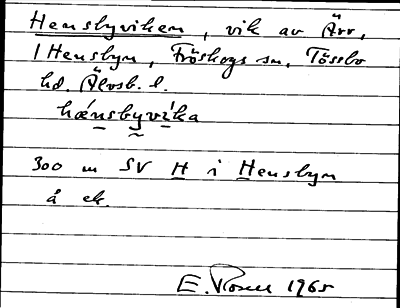 Henslyviken, vik av Ärr,
l Hensbyn, Fröskogs sn, Tössbo
hd. Älvsb. l.
hǽnsbyvika
300 m SV H i Hensbyn
å ek.
E. Rosell 1965